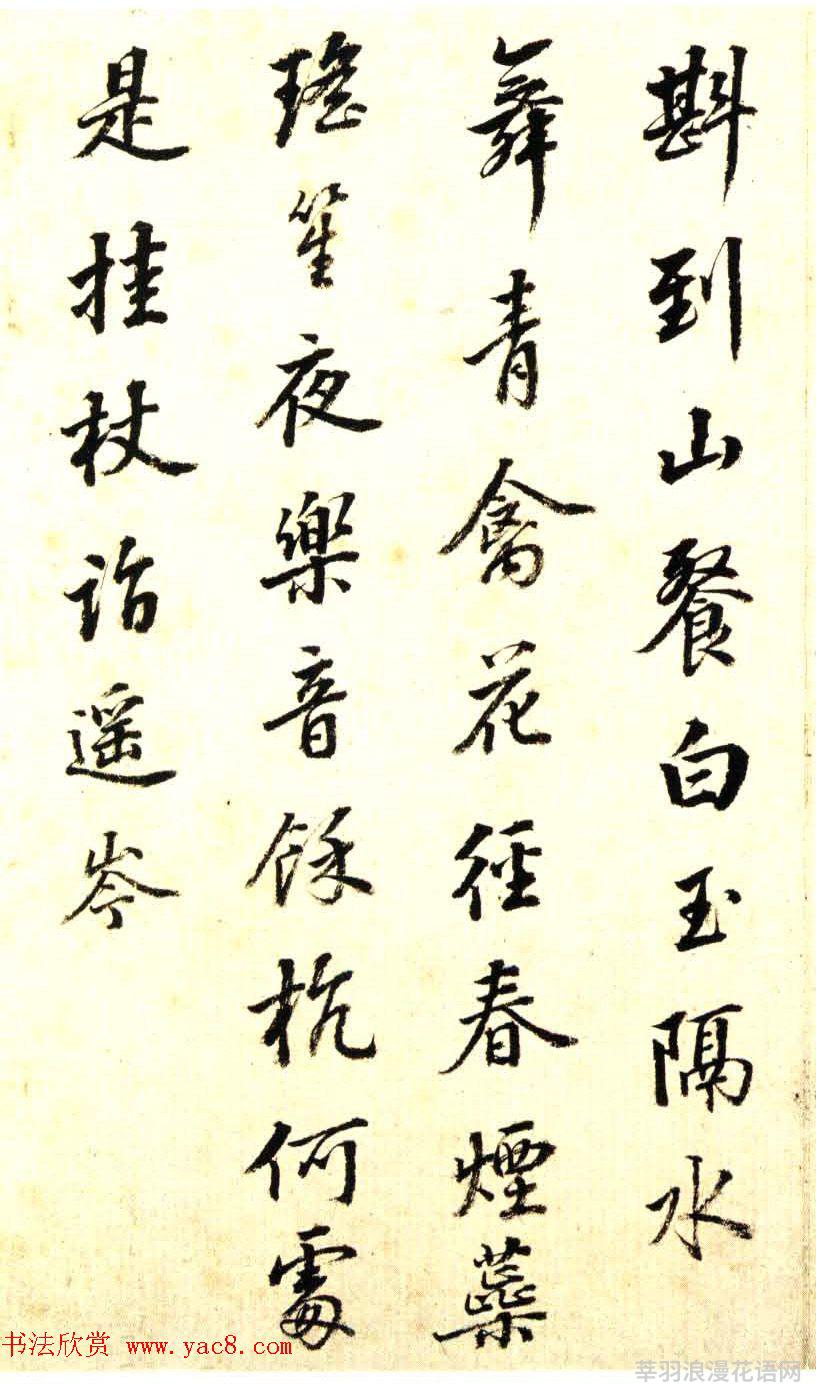 斟到山餐白玉隔水
舞青禽花徑春煙蘂
瑤笙夜樂音餘杭何處
是挂杖詣遥岑
书法欣赏 www.yac8.com
莘羽浪漫花语网